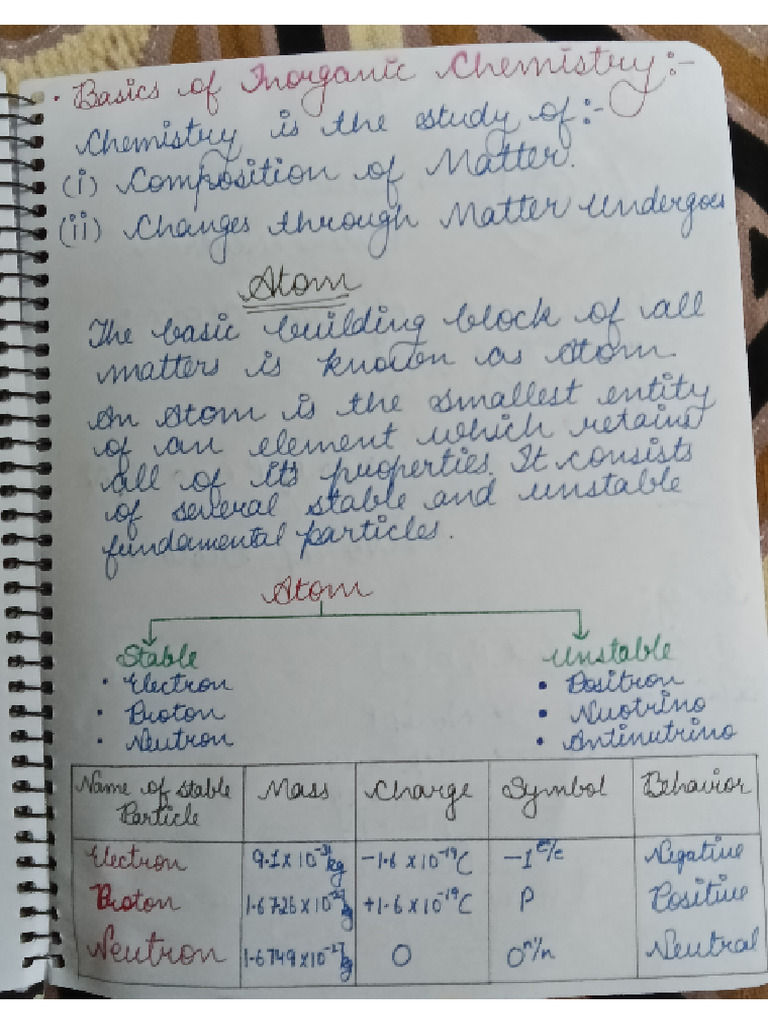 • Basics of Inorganic Chemistry:-
Chemistry is the study of:-
(i) Composition of Matter.
(ii) Changes through Matter undergoes
Atom
The basic building block of all
matters is known as Atom.
An Atom is the smallest entity
of an element which retains
all of its properties. It consists
of several stable and unstable
fundamental particles.
Atom
Stable Unstable
• Electron • Positron
• Proton • Nuotrino
• Neutron • Antinutrino
Name of stable Particle Mass Charge Symbol Behavior
Electron 9.1 x 10⁻³¹kg -1.6 x 10⁻¹⁹C -1e/e Negative
Proton 1.6726 x 10⁻²⁷kg +1.6 x 10⁻¹⁹C P Positive
Neutron 1.6749 x 10⁻²⁷kg 0 0n/n Neutral